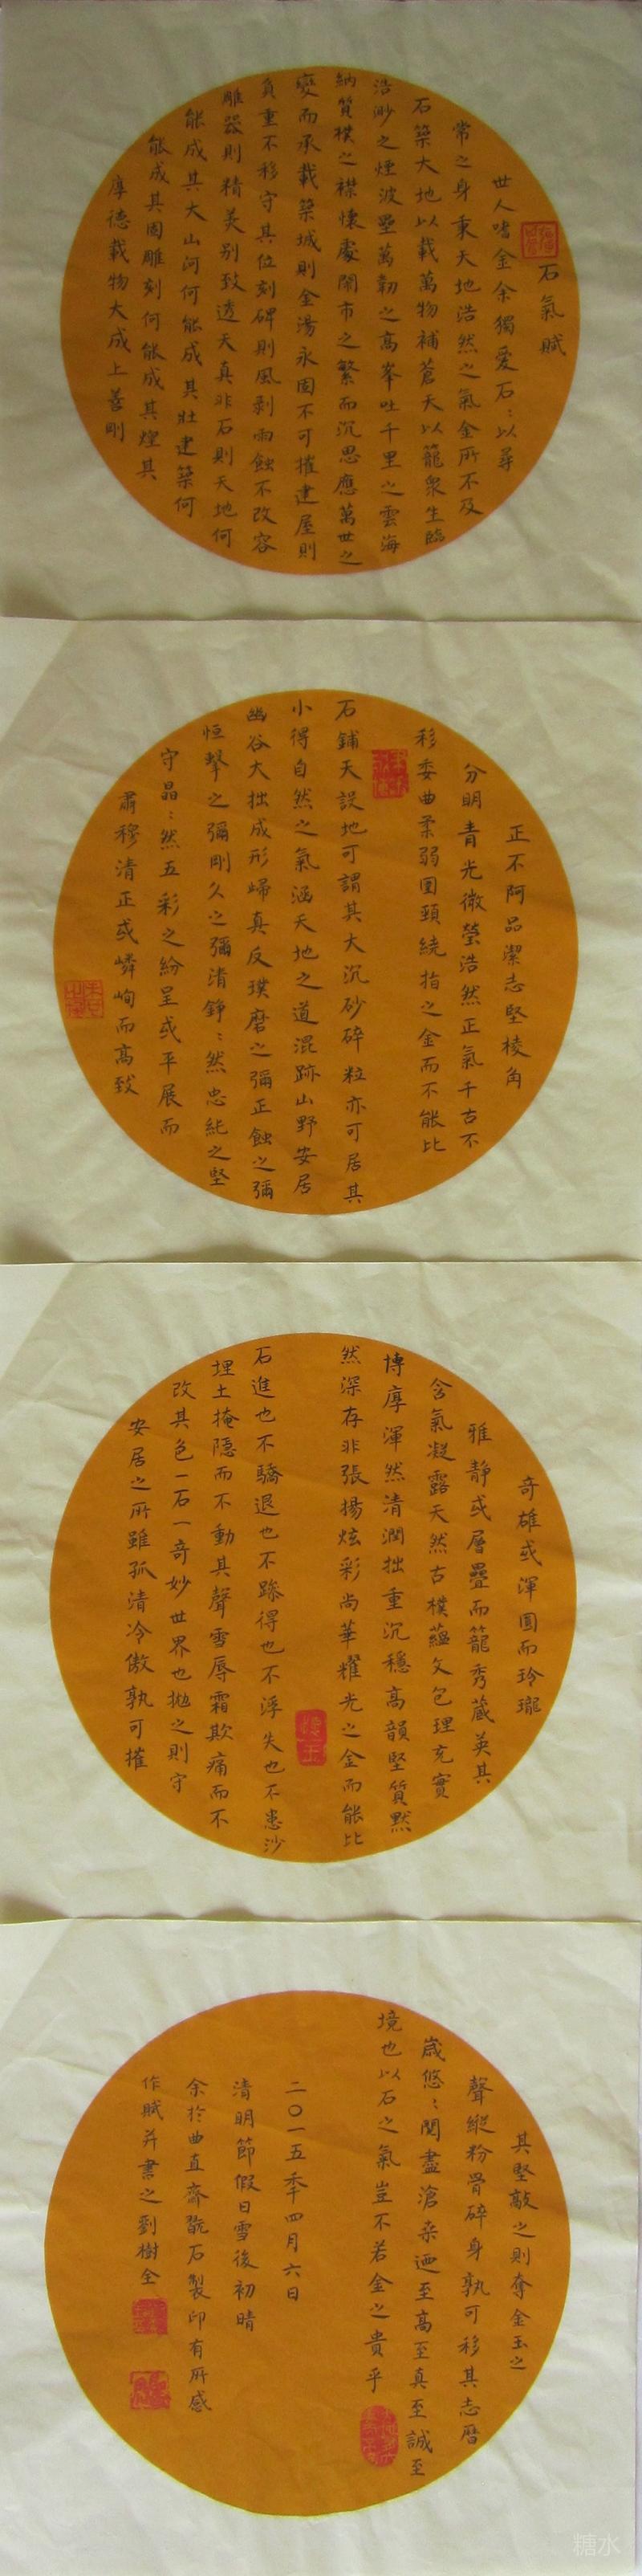 石氣賦
世人嗜金余獨愛石:以尋
常之身秉天地浩然之氣金所不及
石築大地以載萬物補蒼天以籠衆生臨
浩渺之煙波壘萬韌之高峯吐千里之雲海
納質樸之襟懷處鬧市之繁而沉思應萬世之
變而承載築城則金湯永固不可摧建屋則
負重不移守其位刻碑則風剥雨蝕不改容
雕器則精美别致透天真非石則天地何
能成其大山河何能成其壯建築何
能成其固雕刻何能成其煌其
厚德載物大成上善剛
正不阿品潔志堅棱角
分明青光微瑩浩然正氣千古不
移委曲柔弱圓頸繞指之金而不能比
石鋪天設地可謂其大沉砂碎粒亦可居其
小得自然之氣涵天地之道混跡山野安居
幽谷大拙成形歸真反璞磨之彌正蝕之彌
恒擊之彌剛久之彌清錚:然忠純之堅
守晶:然五彩之紛呈或平展而
肅穆清正或嶙峋而高致
奇雄或渾圓而玲瓏
雅靜或層疊而籠秀藏英其
含氣凝露天然古樸蘊文包理充實
博厚渾然清潤拙重沉穩高韻堅質默
然深存非張揚炫彩尚華耀光之金而能比
石進也不驕退也不餒得也不浮失也不恚沙
埋土掩隱而不動其聲雪辱霜欺痛而不
改其色一石一奇妙世界也拋之則守
安居之所雖孤清冷傲孰可摧
其堅敲之則奪金玉之
聲縱粉骨碎身孰可移其志曆
歲悠:閱盡滄桑迺至高至真至誠至
境也以石之氣豈不若金之貴乎
二〇一五年四月六日
清明節假日雪後初晴
余於曲直齋翫石製印有所感
作賦并書之劉樹全
糖水